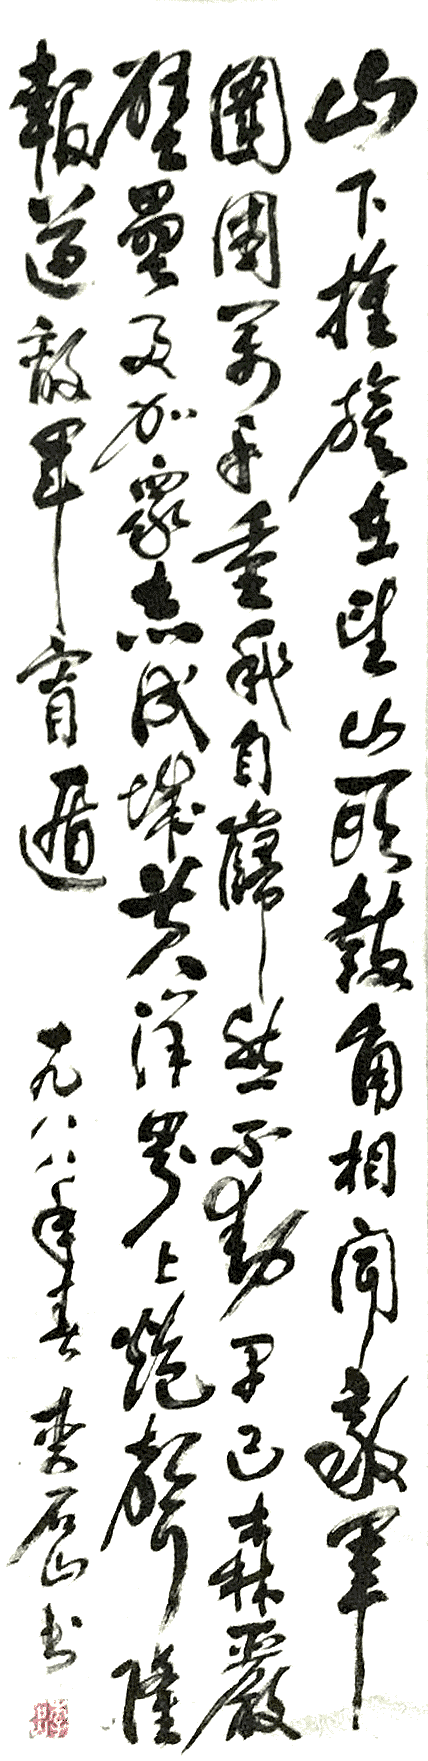 山下旌旗在望山頭鼓角相聞敵軍
圍困萬千重我自巋然不動早已森嚴
壁壘更加眾志成城黃洋界上炮聲隆
報道敵軍宵遁
一九八八年春 李石山书